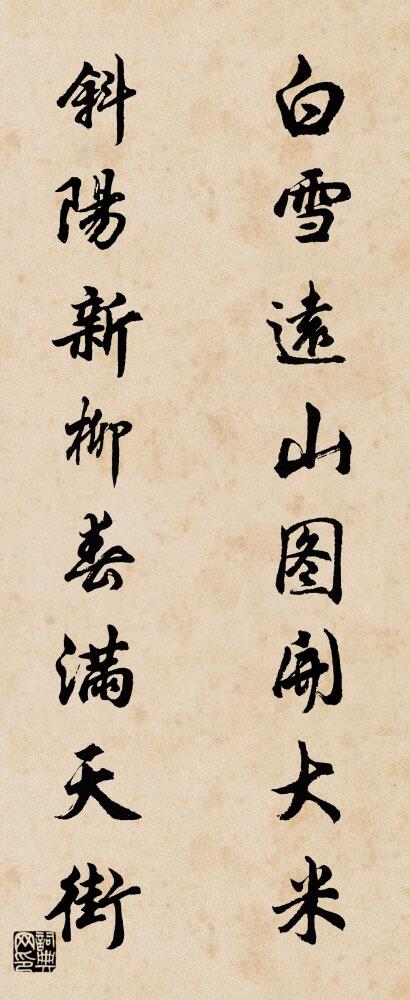 白雪遠山图開大米
斜陽新柳春滿天街
詞典网印